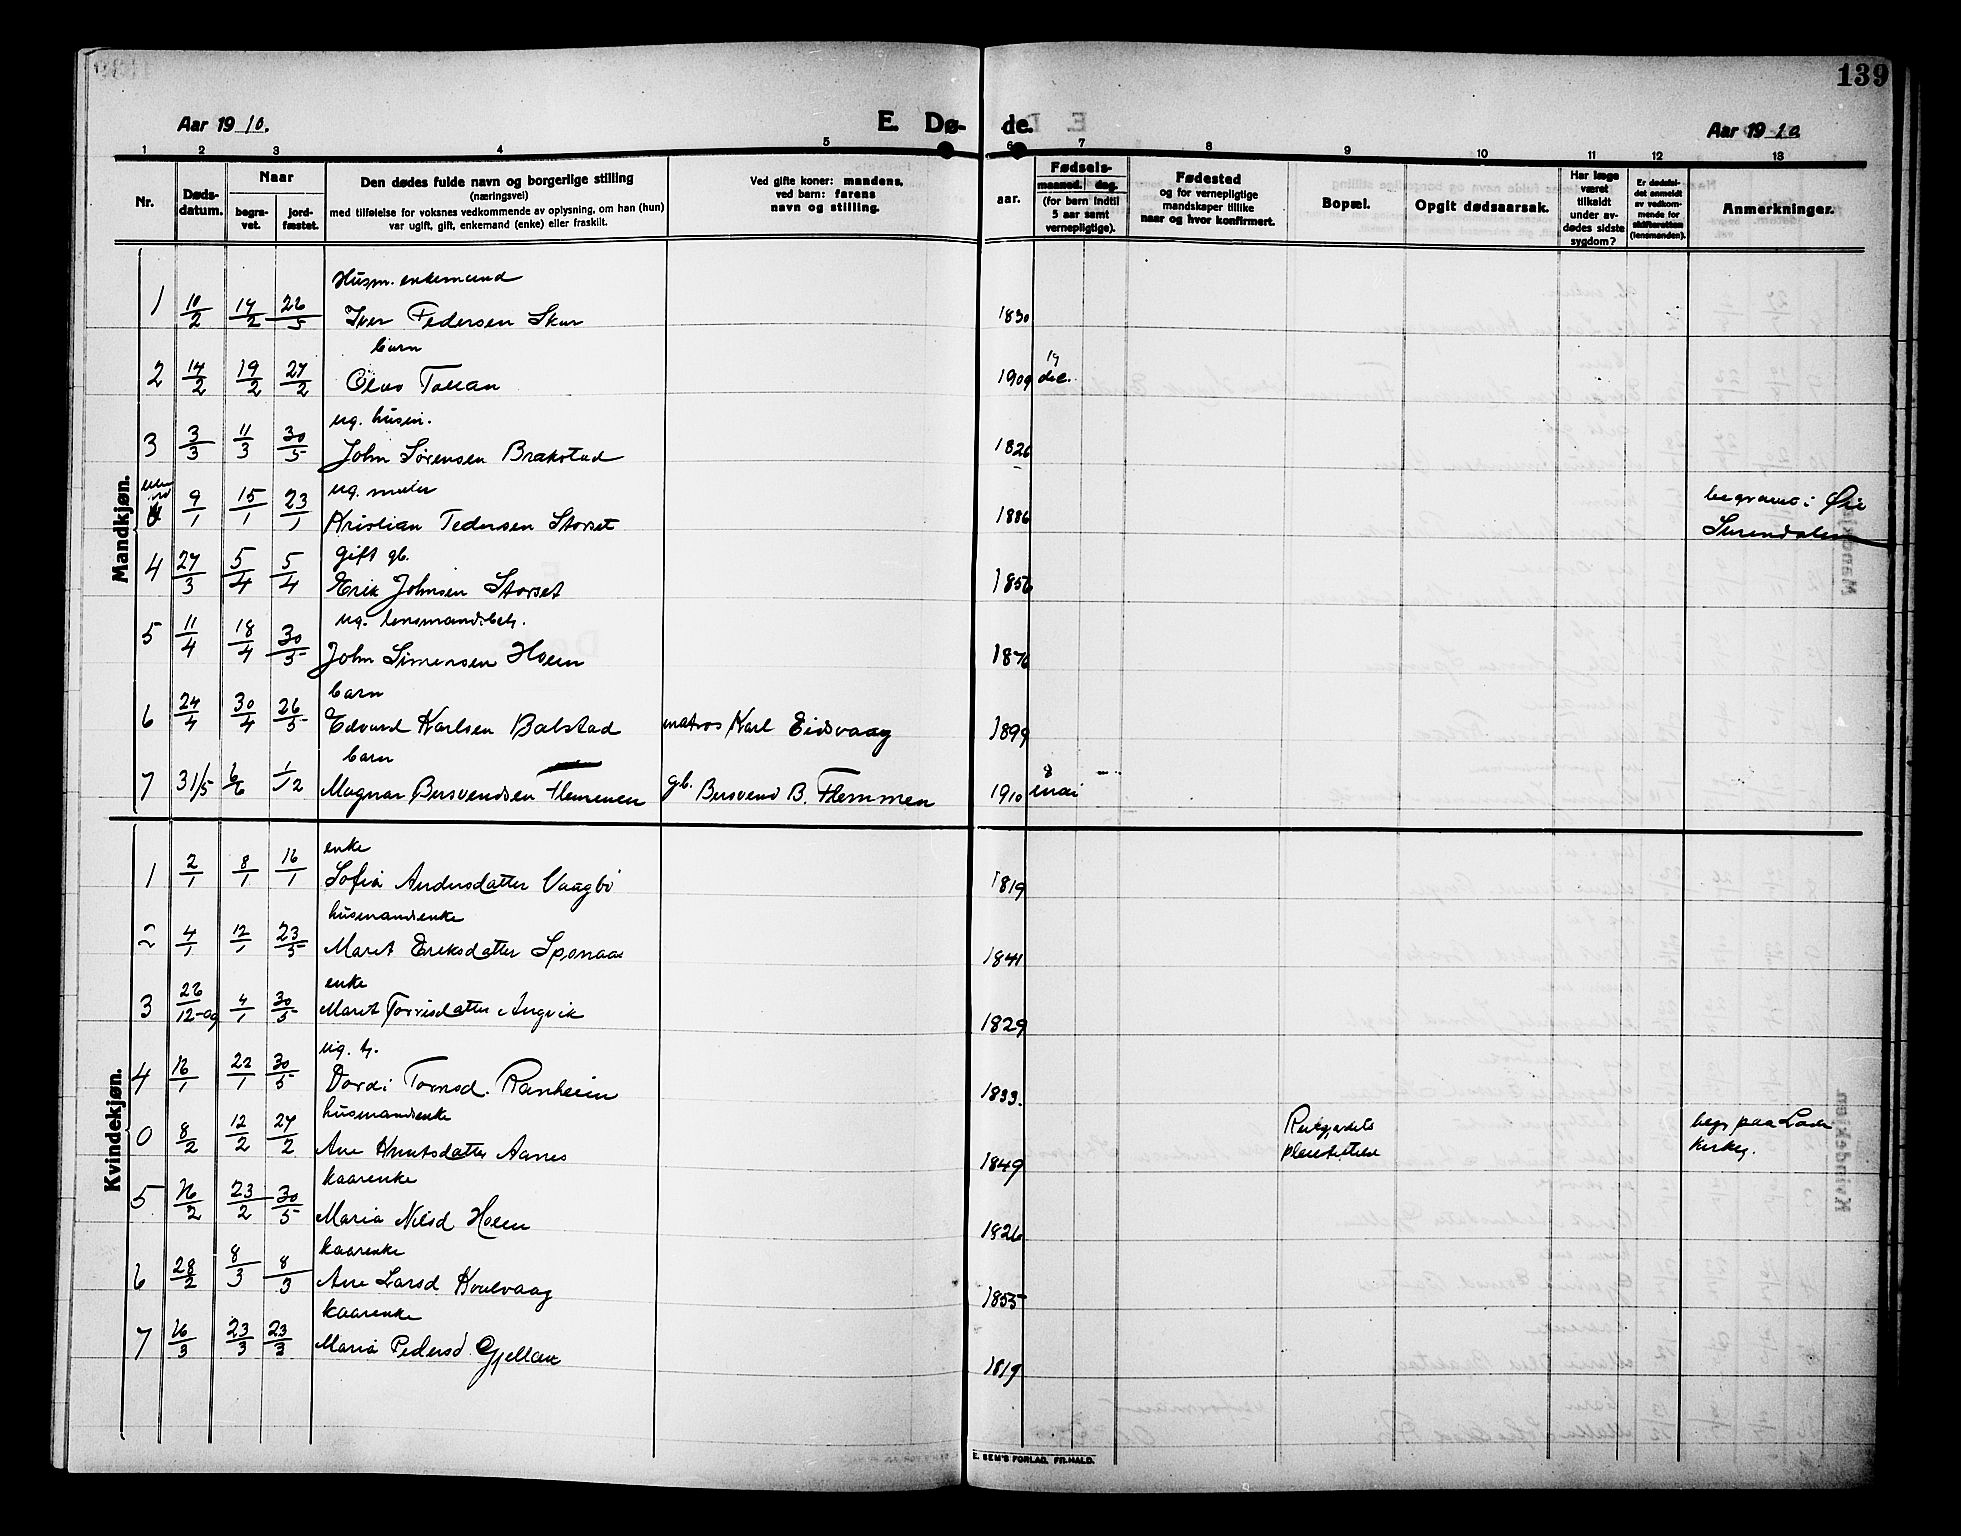 139
Aar 1910.
E. Dø- de.
Aar 1910
1 2 3 4 5 6 7 8 9 10 11 12 13
Nr.
Døds-
datum.
Naar
begra-
vet.
jord-
fæstet.
Den dødes fulde navn og borgerlige stilling
(næringsvei)
med tilføielse for voksnes vedkommende av oplysning, om han (hun)
var ugift, gift, enkemand (enke) eller fraskilt.
Ved gifte koner: mandens,
ved barn: farens
navn og stilling.
aar.
Fødsels-
maaned. dag.
(for børn indtil
5 aar samt
vernepligtige).
Fødested
og for vernepligtige
mandskaper tillike
naar og hvor konfirmert.
Bopæl.
Opgit dødsaarsak.
Har læge
været
tilkaldt
under av-
dødes sidste
sygdom?
Er dødsfal-
det anmeldt
av vedkom-
mende for
skifteretten
(lensmanden).
Anmerkninger.
Mandkjøn.
Husm. enkemand
1 10/2 17/2 22/5 Iver Pedersen Skur 1830
barn
2 14/2 19/2 27/2 Olav Talian 1909 19 dec.
ug. husm.
3 3/3 11/3 30/5 John Sørensen Brakstad 1826
ug. maler
9/1 15/1 23/1 Kristian Pedersen Storset 1886 begraves i Øie
Surendalen
gift gb.
4 27/3 5/4 5/4 Erik Johnsen Storset 1856
ug. lensmandsbetj.
5 11/4 18/4 30/5 John Simensen Hoem 1876
barn
6 24/4 30/4 26/5 Edvard Karlsen Bolstad matros Karl Eidsvaag 1899
barn
7 31/5 6/6 1/12 Magnar Bersvendsen Flemmen gb. Bersvend B. Flemmen 1910 8 mai
Kvindekjøn.
enke
1 2/1 8/1 16/1 Sofia Andersdatter Vaagbø 1819
husmandsenke
2 4/1 12/1 23/5 Maret Eriksdatter Sponaas 1841
enke
3 26/12-09 4/1 30/5 Maret Torrisdatter Angvik 1829
ug. t.
4 16/1 22/1 30/5 Dordi Tormsd. Ranheim 1833.
husmandsenke
0 8/2 12/2 27/2 Ane Knutsdatter Aarnes 1849 Reitgjerdets
pleiestiftelse begr. paa Lade
kirkeg.
kaarenke
5 16/2 23/2 30/5 Maria Nilsd Hoem 1826
kaarenke
6 28/2 8/3 8/3 Ane Larsd Koulvaag 1855
kaarenke
7 16/3 23/3 23/3 Maria Pedersd. Gjellan 1819
E. SEM'S FORLAG, FR.HALD.